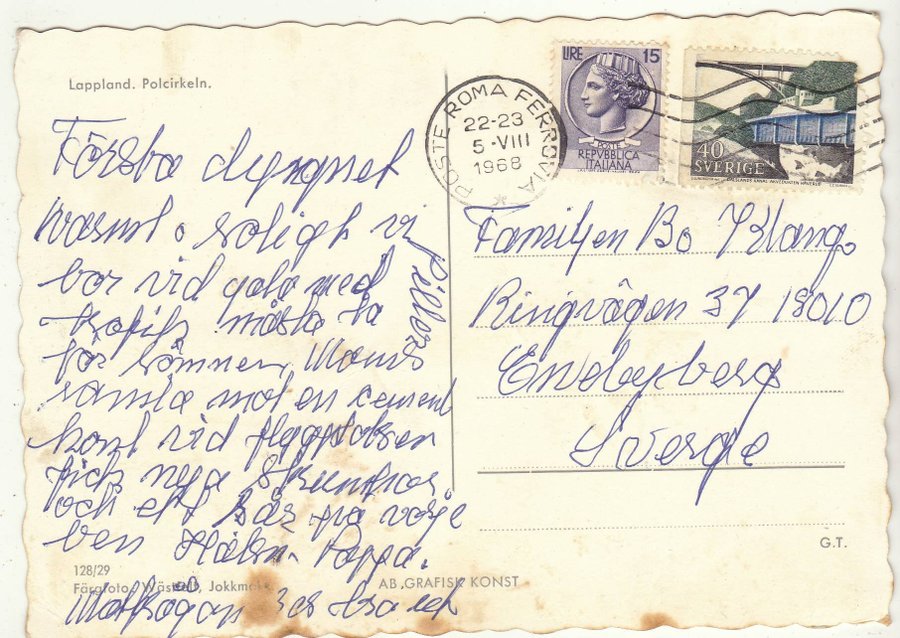 Lappland. Polcirkeln.
POSTE ROMA FERROVIA
22-23
5-VIII
1968
LIRE 15
POSTE
REPVBBLICA
ITALIANA
40
SVERIGE
Första
varmt o soligt vi
bor vid gata med
trafik måste ta
piller
för sömnen, Mamma
ramla mot en cement
kant vid
fick nya strumpor
och ett sår på varje
ben Hälsn. Pappa.
Familjen Bo Klang
Ringvägen 37 18010
Enebyberg
Sverge
G.T.
128/29
Färgfoto: Jokkmokk
AB GRAFISK KONST